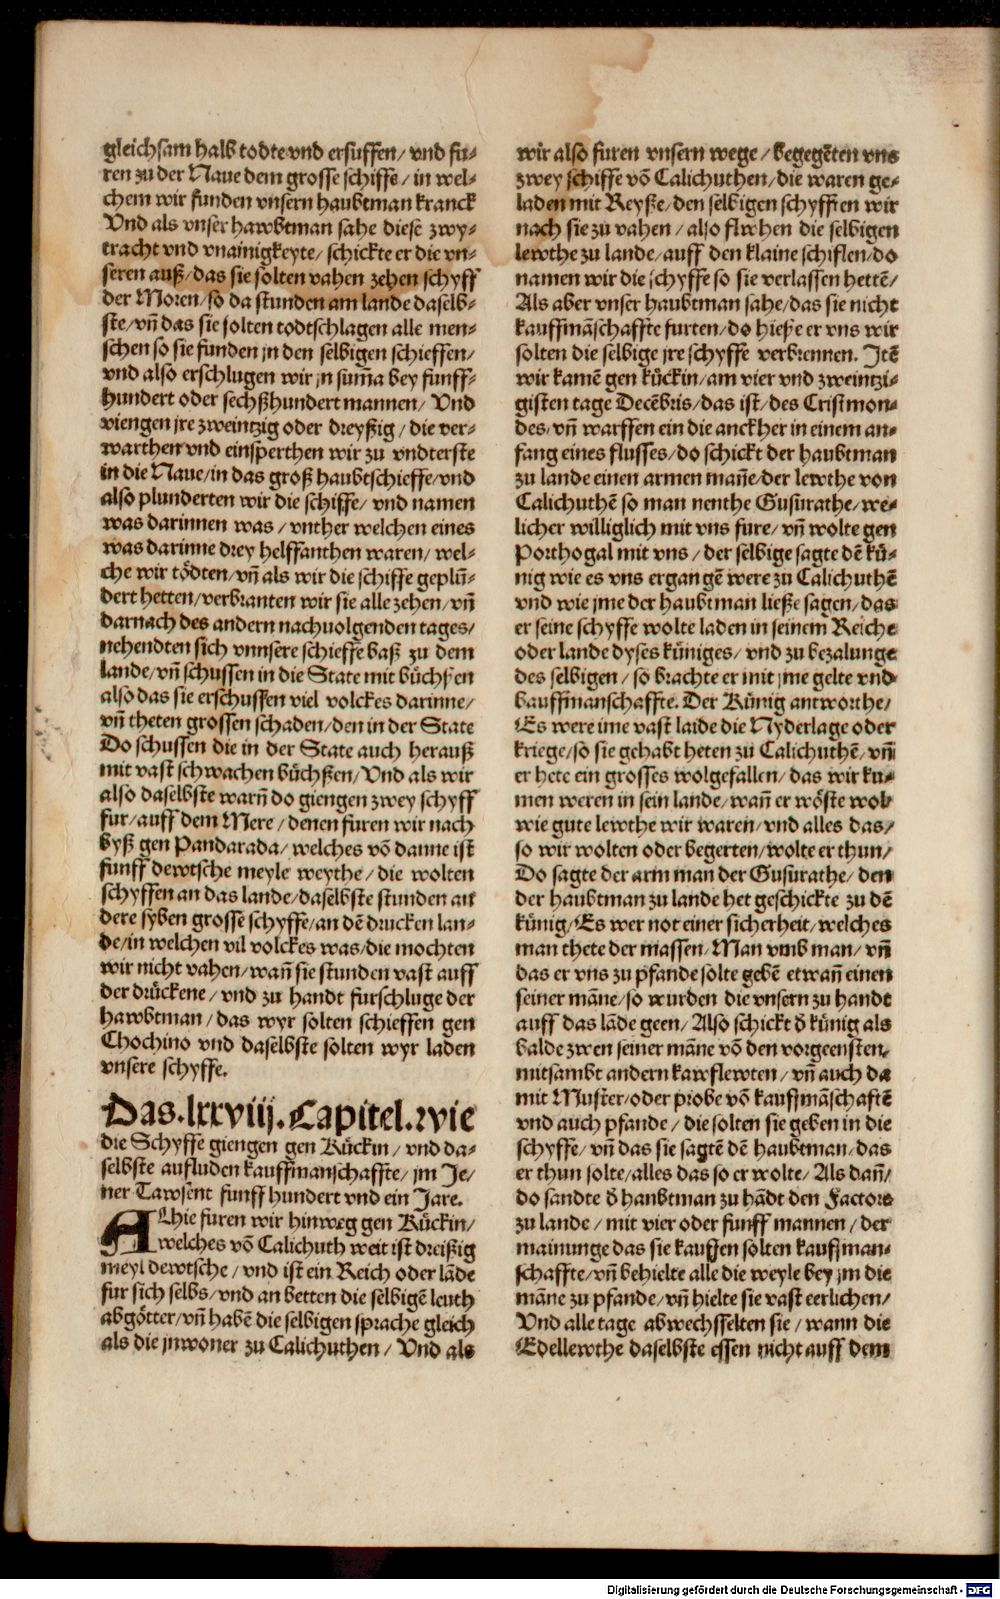 gleichsam halb todte vnd ersuffen/ vnd fu-
ren zu der Naue dem grosse schiffe/ in wel-
chem wir funden vnsern haubtman kranck
Vnd als vnser hawbtman sahe diese zwy-
tracht vnd vnainigkeyte/ schickte er die vn-
seren auß/ das sie solten vahen zehen schyff
der Moren/ so da stunden am lande daselb-
ste/ vn̄ das sie solten todtschlagen alle men-
schen so sie funden jn den selbigen schieffen/
vnd also erschlugen wir jn sum̄a bey funff-
hundert oder sechßhundert mannen/ Vnd
viengen jre zweintzig oder dreyßig/ die ver-
warthen vnd einsperthen wir zu vndterste
in die Naue/ in das groß haubtschieffe/ vnd
also plunderten wir die schiffe/ vnd namen
was darinnen was/ vnther welchen eines
was darinne drey helffanthen waren/ wel-
che wir tödten/ vn̄ als wir die schiffe geplū-
dert hetten/ verbranten wir sie alle zehen/ vn̄
darnach des andern nachuolgenden tages/
nehendten sich vnnsere schieffe baß zu dem
lande/ vn̄ schussen in die State mit büchßen
also das sie erschussen viel volckes darinne/
vn̄ theten grossen schaden/ den in der State
Do schussen die in der State auch herauß
mit vast schwachen büchßen/ Vnd als wir
also daselbste warn̄ do giengen zwey schyff
fur/ auff dem Mere/ denen furen wir nach
byß gen Pandarada/ welches vō danne ist
funff dewtsche meyle weythe/ die wolten
schyffen an das lande/ daselbste stunden an
dere syben grosse schyffe/ an dē drucken lan-
de/ in welchen vil volckes was/ die mochten
wir nicht vahen/ wan̄ sie stunden vast auff
der drückene/ vnd zu handt furschluge der
hawbtman/ das wyr solten schieffen gen
Chochino vnd daselbste solten wyr laden
vnsere schyffe.
Das.lxxviij.Capitel.wie
die Schyffe giengen gen Kückin/ vnd da-
selbste aufluden kauffmanschaffte/ jm Je/
ner Tawsent funff hundert vnd ein Jare.
Alhie furen wir hinweg gen Kückin/
welches vō Calichuth weit ist dreißig
meyl dewtsche/ vnd ist ein Reich oder lāde
fur sich selbs/ vnd an betten die selbigē leuth
abgötter/ vn̄ habē die selbigen sprache gleich
als die jnwoner zu Calichuthen/ Vnd als
wir also furen vnsern wege/ begegēten vns
zwey schiffe vō Calichuthen/ die waren ge-
laden mit Reyße/ den selbigen schyffen wir
nach sie zu vahen/ also flwhen die selbigen
lewthe zu lande/ auff den klaine schiflen/ do
namen wir die schyffe so sie verlassen hettē/
Als aber vnser haubtman sahe/ das sie nicht
kauffmāschaffte furten/ do hieße er vns wir
solten die selbige jre schyffe verbrennen. Jtē
wir kamē gen kückin/ am vier vnd zweintzi-
gisten tage Decēbris/ das ist/ des Cristmon-
des/ vn̄ warffen ein die anckher in einem an-
fang eines flusses/ do schickt der haubtman
zu lande einen armen man̄e/ der lewthe von
Calichuthē so man nenthe Gusurathe/ we-
licher williglich mit vns fure/ vn̄ wolte gen
Porthogal mit vns/ der selbige sagte dē kü-
nig wie es vns ergangē were zu Calichuthē
vnd wie jme der haubtman ließe sagen/ das
er seine schyffe wolte laden in seinem Reiche
oder lande dyses küniges/ vnd zu bezalunge
des selbigen/ so brachte er mit jme gelte vnd
bauffmanschaffte. Der Künig antworthe/
Es were ime vast laide die Nyderlage oder
kriege/ so sie gehabt heten zu Calichuthē/ vn̄
er hete ein grosses wolgefallen/ das wir ku-
men weren in sein lande/ wan̄ er wöste wol
wie gute lewthe wir waren/ vnd alles das/
so wir wolten oder begerten/ wolte er thun/
Do sagte der arm man der Gusurathe/ den
der haubtman zu lande het geschickte zu dē
künig/ Es wer not einer sicherheit/ welches
man thete der massen/ Man vmb man/ vn̄
das er vns zu pfande solte gebē etwan̄ einen
seiner māne/ so wurden die vnsern zu handt
auff das lāde geen/ Also schickt d̄ künig als
balde zwen seiner māne vō den vorgeensten/
mitsambt andern kawflewten/ vn̄ auch da
mit Muster/ oder probe vō kauffmāschaftē
vnd auch pfande/ die solten sie geben in die
schyffe/ vn̄ das sie sagtē dē haubtman/ das
er thun solte/ alles das so er wolte/ Als dan̄/
do sandte d̄ haubtman zu hādt den Factore
zu lande/ mit vier oder funff mannen/ der
mainunge das sie kauffen solten kauffman-
schaffte/ vn̄ behielte alle die weyle bey jm die
māne zu pfande/ vn̄ hielte sie vast eerlichen/
Vnd alle tage abwechsselten sie/ wann die
Edellewthe daselbste essen nicht auff dem
Digitalisierung gefördert durch die Deutsche Forschungsgemeinschaft - DFG